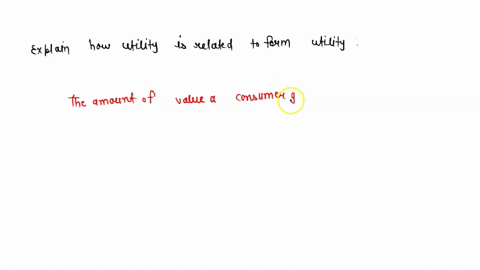 Explain how utility is related to form utility.
The amount of value a consumer g